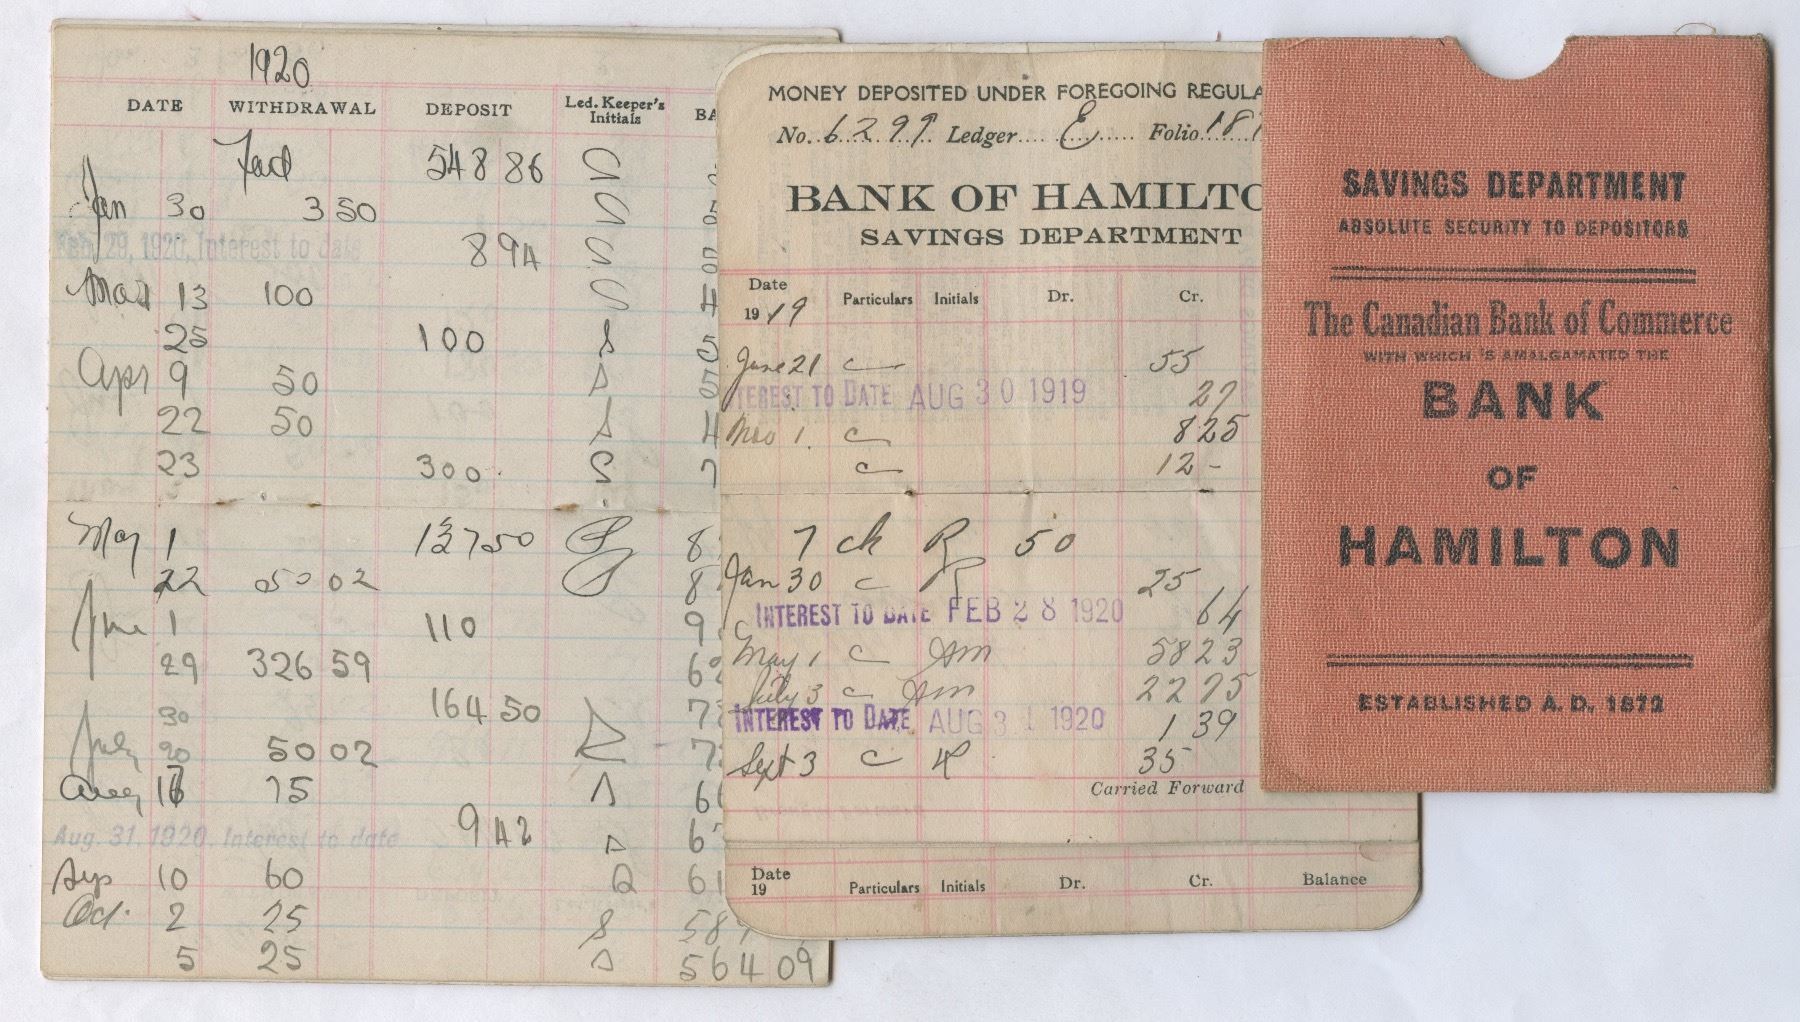 1920
DATE WITHDRAWAL DEPOSIT Led. Keeper's Initials BA
Fwd 548 86
Jan 30 3 50 5
Feb. 29, 1920, Interest to date 8 94 5
Mar 13 100 4
25 100 5
Apr 9 50 5
22 50 4
23 300 7
May 1 137 50 8
22 50 02 8
June 1 110 9
29 326 59 6
30 164 50 7
July 20 50 02 7
Aug 16 75 66
Aug. 31, 1920, Interest to date 9 42 6
Sep 10 60 61
Oct. 2 25 589
5 25 564 09
MONEY DEPOSITED UNDER FOREGOING REGULA
No. 6297 Ledger E Folio 187
BANK OF HAMILTO
SAVINGS DEPARTMENT
Date 1919 Particulars Initials Dr. Cr.
June 21 c 55
TEREST TO DATE AUG 30 1919 27
Nov 1. c 8 25
c 12 -
7 ck R 50
Jan 30 c R 25
INTEREST TO DATE FEB 28 1920 64
May 1 c 58 23
July 3 c 22 75
INTEREST TO DATE AUG 31 1920 1 39
Sept 3 c 35
Carried Forward
Date 19 Particulars Initials Dr. Cr. Balance
SAVINGS DEPARTMENT
ABSOLUTE SECURITY TO DEPOSITORS
The Canadian Bank of Commerce
WITH WHICH IS AMALGAMATED THE
BANK
OF
HAMILTON
ESTABLISHED A. D. 1872